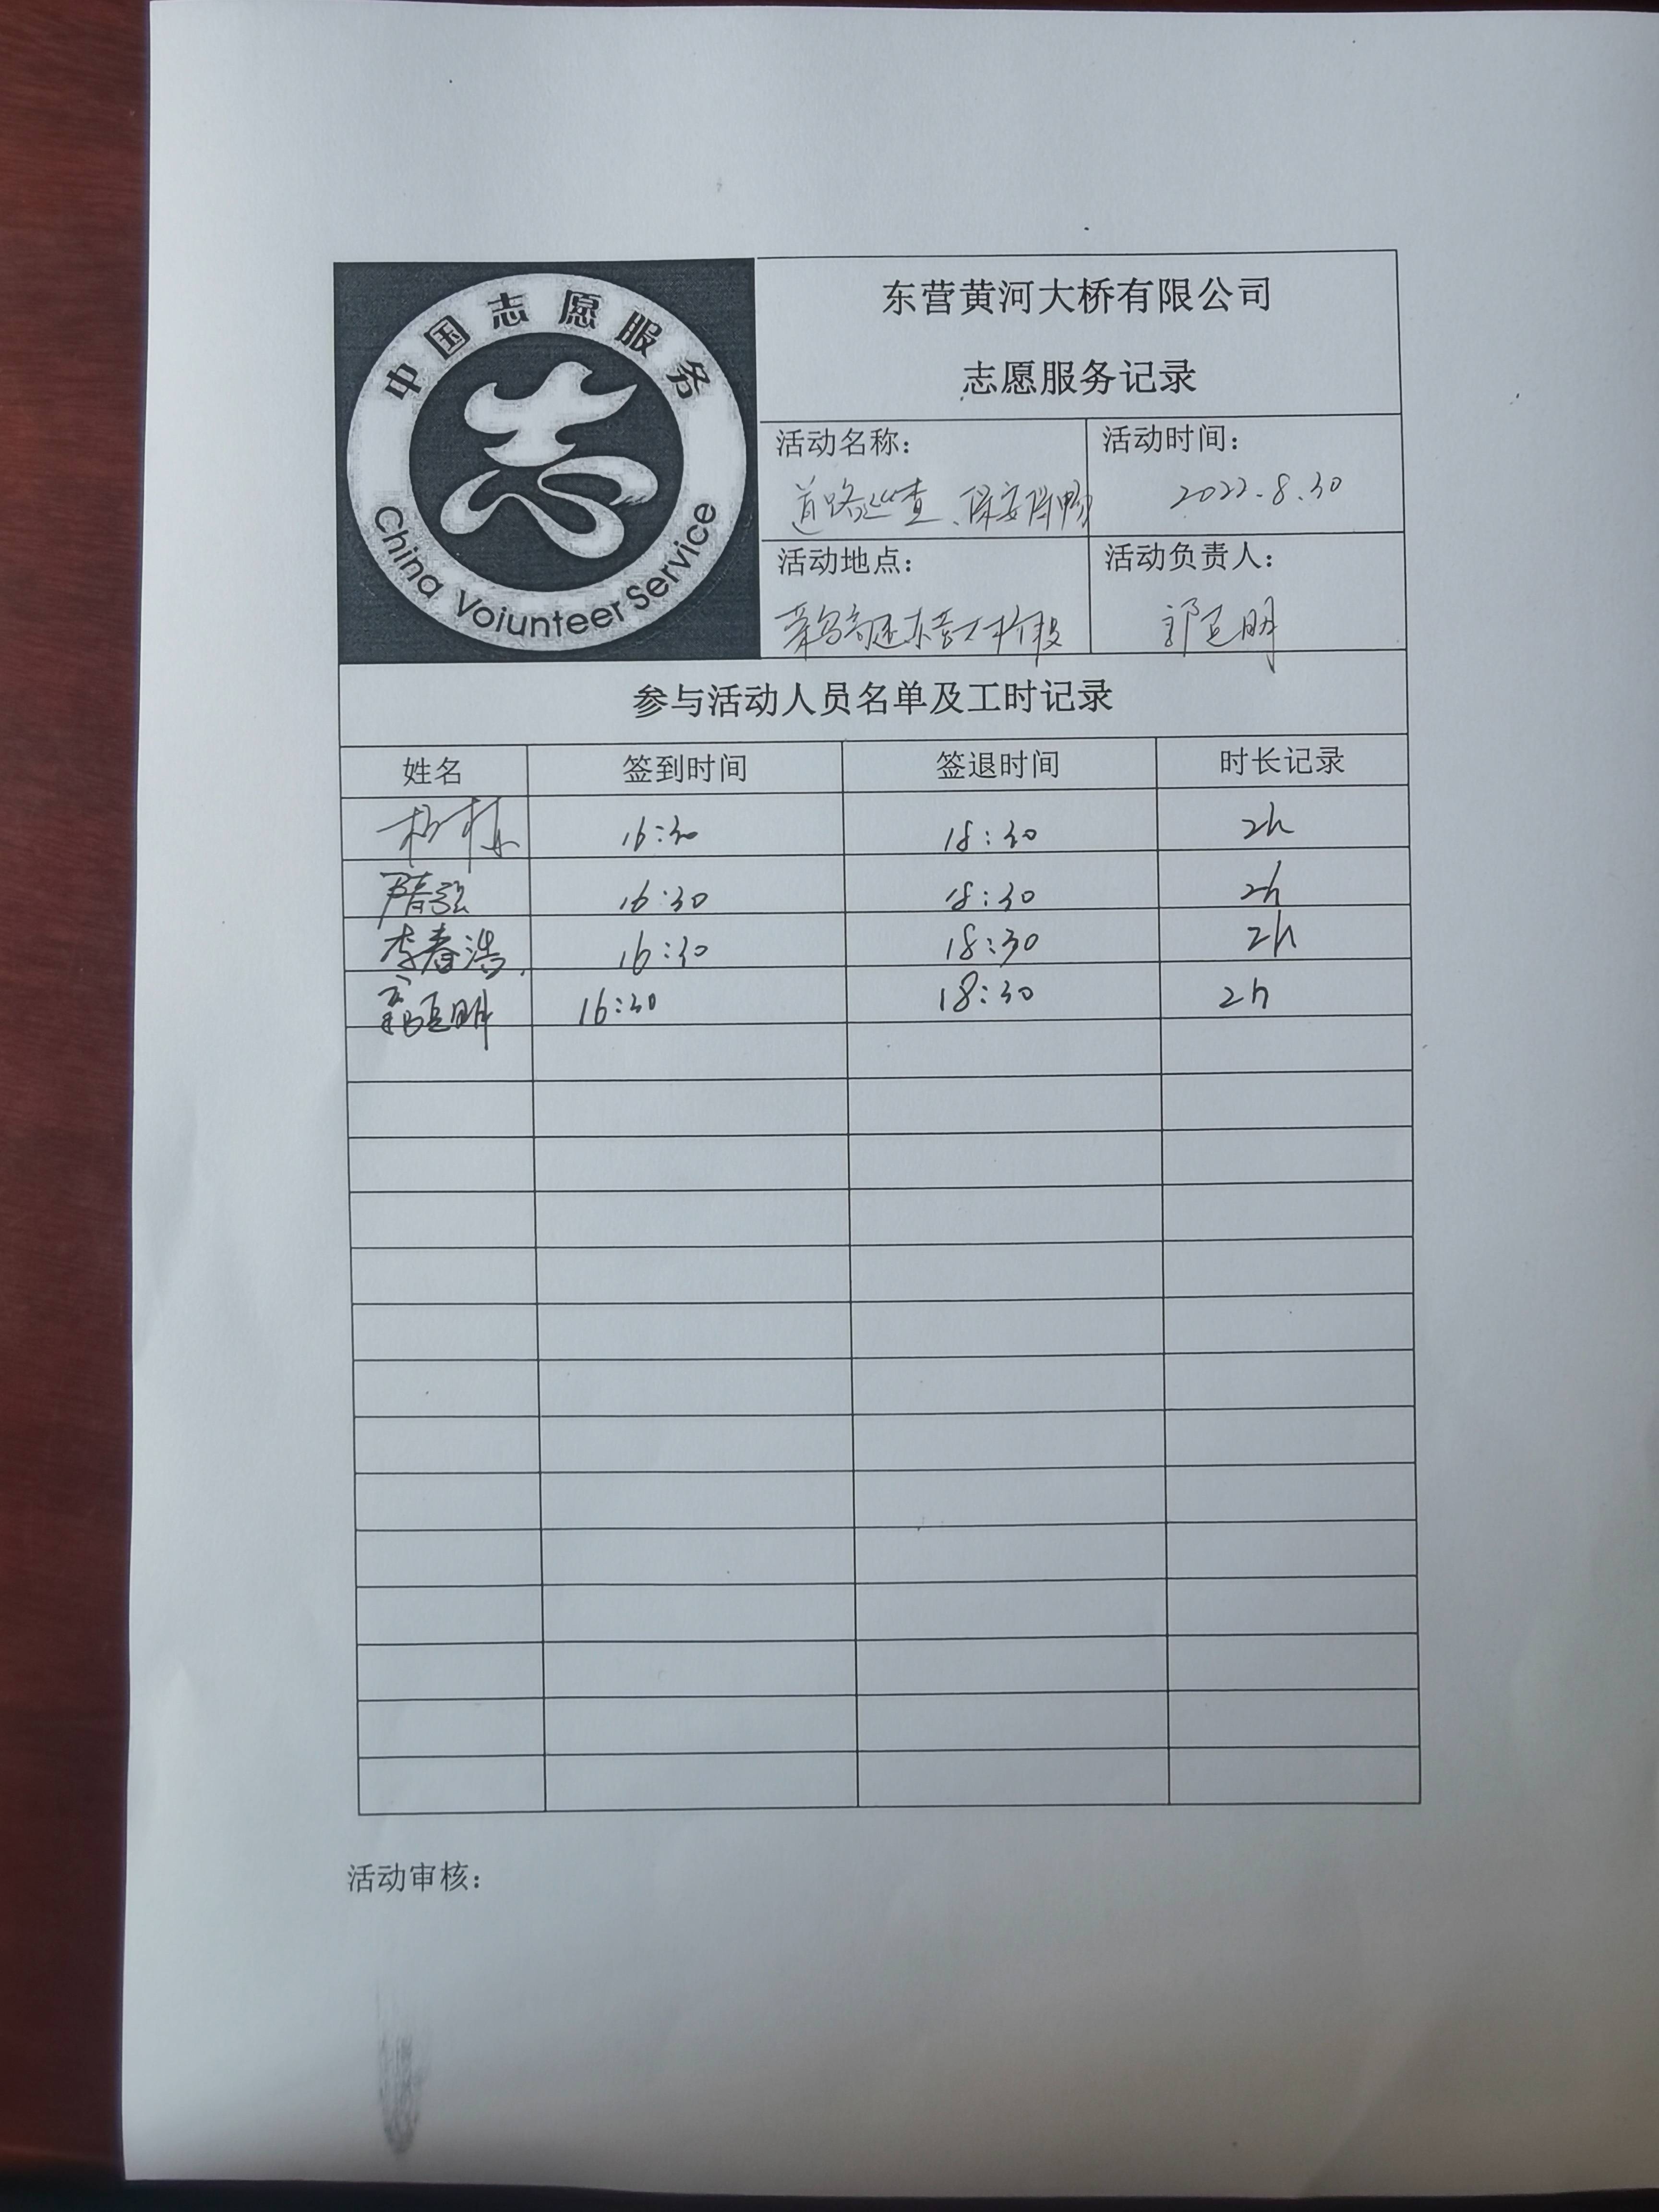 中国志愿服务
志
China Voiunteer Service
东营黄河大桥有限公司
志愿服务记录
活动名称：
道路巡查、保安保畅
活动时间：
2022.8.30
活动地点：
活动负责人：
参与活动人员名单及工时记录
姓名 签到时间 签退时间 时长记录
16:30 18:30 2h
隋 16:30 18:30 2h
李春浩 16:30 18:30 2h
16:30 18:30 2h
活动审核：